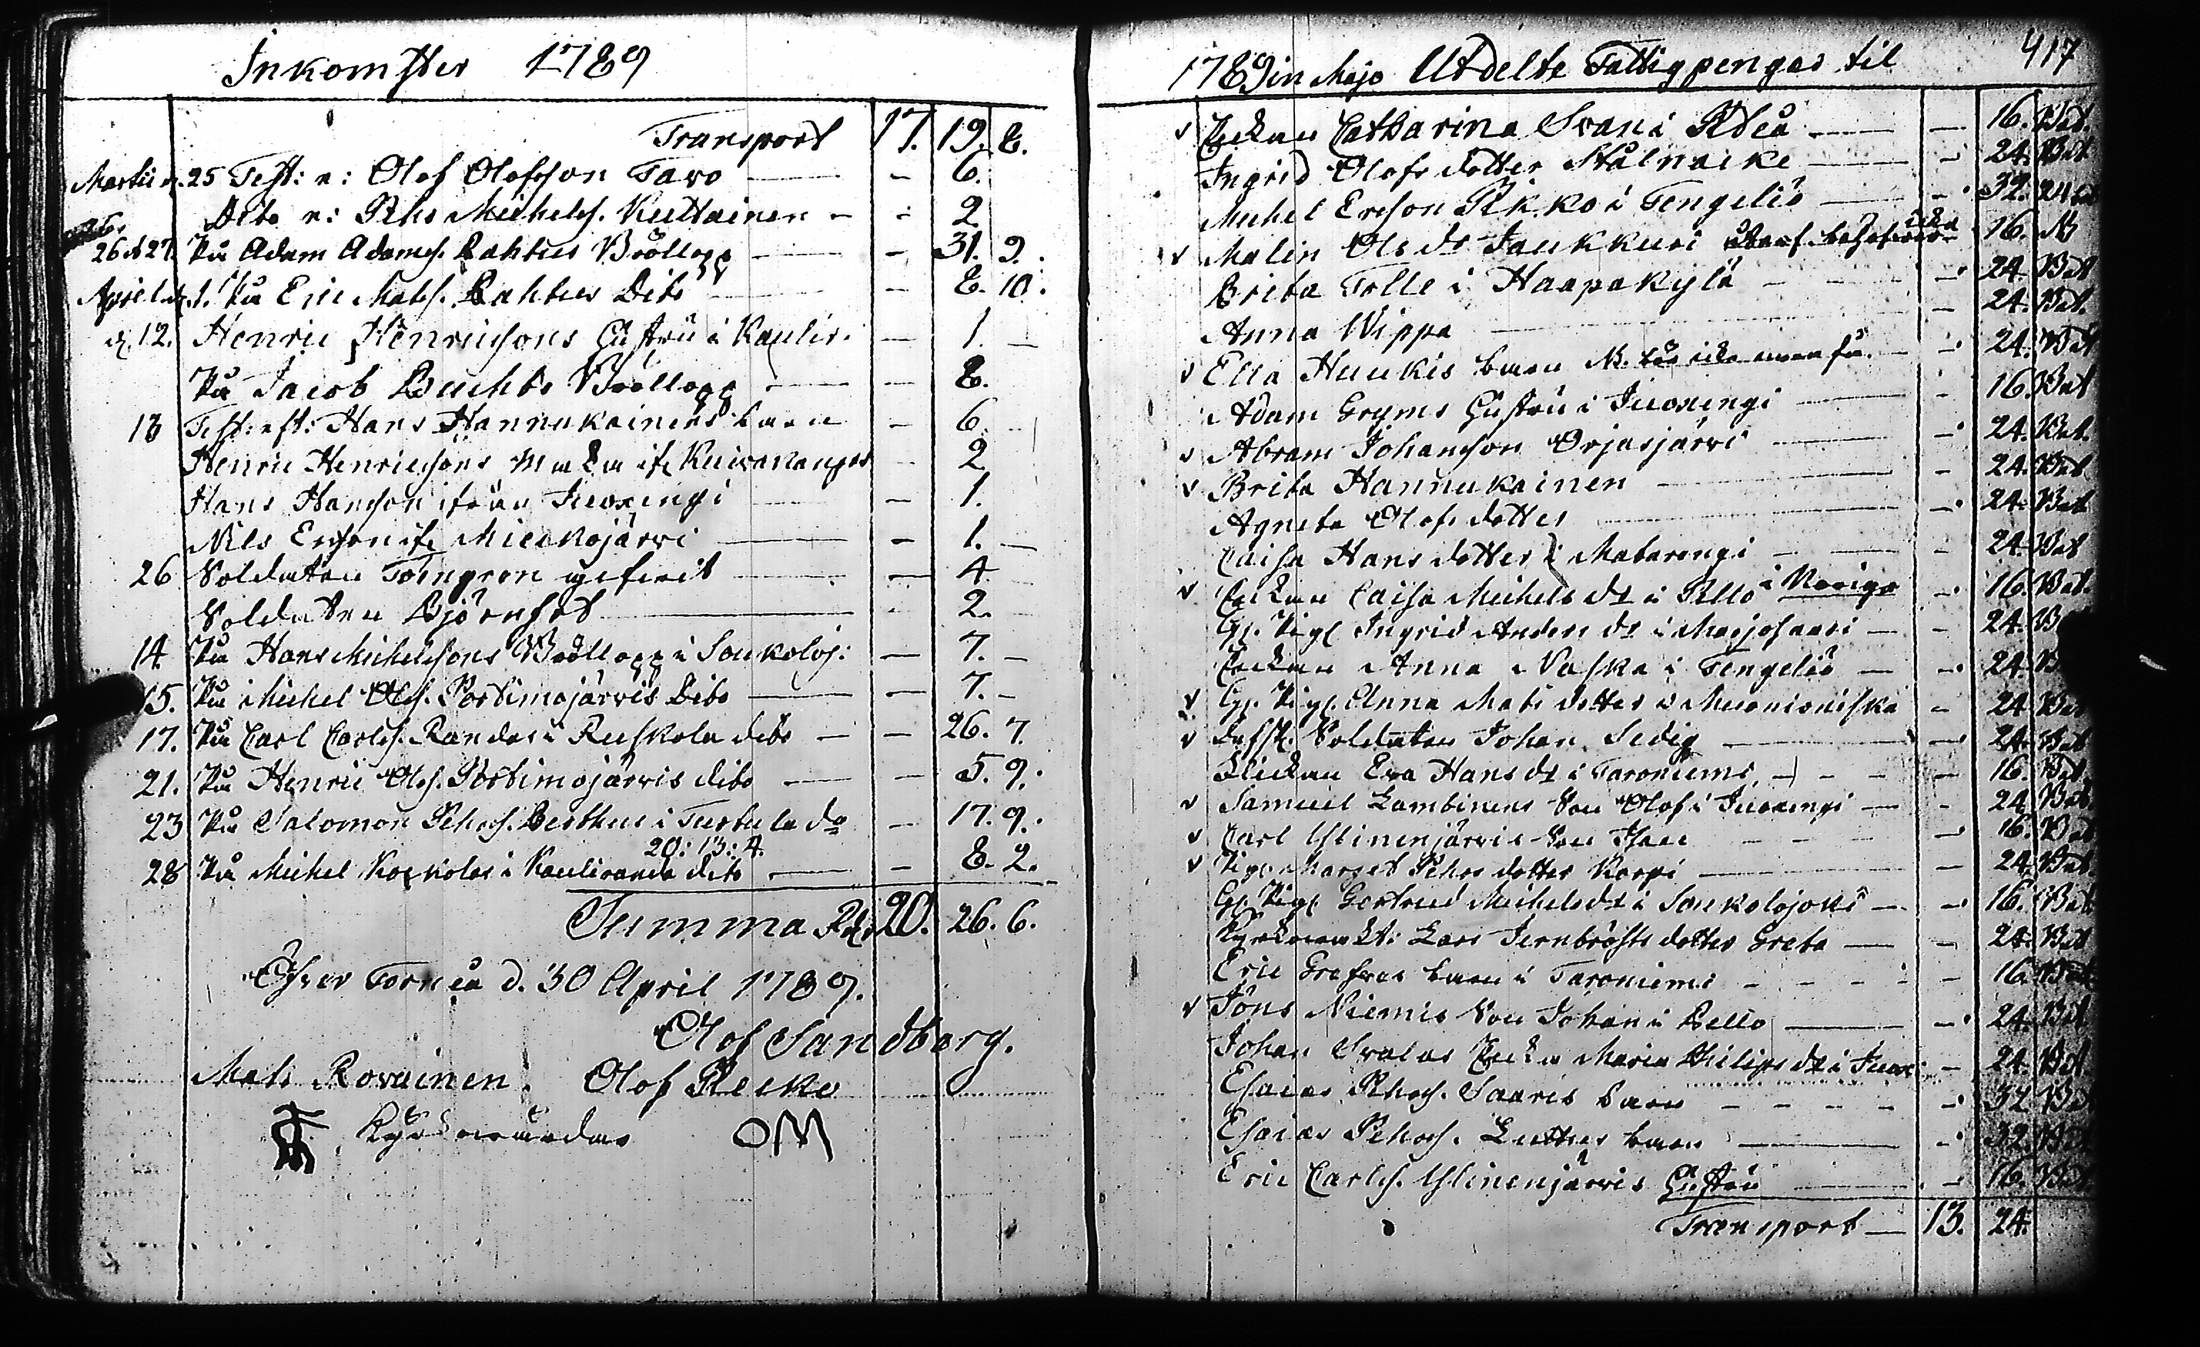 Inkomster 1789
Transport 17. 19. 8.
Martii d. 25 Test: e: Olof Olofsson Taro — 6.
Dito e: Pehr Michels. Kulttainen — 2
26 & 27. På Adam Adams. Lahtis Bröllopp — 31. 9.
April d. 1. På Eric Mats. Lahtis Dito — 8. 10.
d. 12. Henric Henricssons Hustru i Kaulir. — 1. —
På Jacob Buchts Bröllopp — 8.
13 Test: eft: Hans Hannukainens barn — 6.
Henric Henricssons ifr. Kuivakangas — 2
Hans Hansson ifrån Juoxengi — 1.
Nils Ersson ifr. Miekojärvi — 1. —
26 Soldaten — 4
Soldaten Björnfot — 2.
14 På Hans Michelssons Bröllopp i Soukoloj: — 7. —
15. På Michel Ols. Portimojärvis Dito — 7. —
17. På Carl Carls. Randas i Ruskola dito — 26. 7.
21. På Henric Ols. Portimojärvis dito — 5. 9.
23 På Salomon Pehrs. i Turtula do — 17. 9.
20: 13: 4.
28 På Michel Kockolas i Kauliranda dito — 8. 2.
Summa Rd. 20. 26. 6.
Öfver Torneå d. 30 April 1789.
Olof Sandberg.
Mats Rovainen. Olof
Kyrkovärdar OM
417
1789 in Majo Utdelte Fattigpengar til
v Enkan Catharina Svan i — 16. Bet.
Ingrid Olofs dotter Stålnacke — 24. Bet
Michel Ersson Pikko i Tengeliö — 32.
v Malin Ols dr Jaukkuri — 16.
Brita Tolle i Haapakylä — 24. Bet
Anna Wippa — 24. Bet.
v Ella Huukis barn — 24. Bet
Adam Gryms Hustru i Juoxengi — 16. Bet
v Abram Johansson Orjasjärvi — 24. Bet.
v Brita Hannukainen — 24. Bet
Agneta Olofs dotter — 24. Bet
Caisa Hans dotter i Matarengi — 24. Bet
v Enkan Caisa Michels dr i Pello i Norige — 16. Bet.
Gl. Pig. Ingrid Anders dr i Marjosaari — 24.
Enkan Anna Naska i Tengeliö — 24.
v Gl. Pig. Anna Mats dotter i Muonioniska — 24. Bet
v Afsk. Soldaten Johan Sedig — 24. Bet
Flickan Eva Hans dr i Taroniemi — 16. Bet.
v Samuel Lambinens Son Olof i Juoxengi — 24. Bet.
v Carl Ylinenjärvis Son Isac — 16. Bet
v Pig. Margret Pehrs dotter Korpi — 24. Bet.
Gl. Pig. Gertrud Michels dr i Soukolojoki — 16. Bet
Lars Jernbrösts dotter Greta — 24. Bet
Eric barn i Taroniemi — 16. Bet
v Jöns Niemis Son Johan i Pello — 24. Bet
Johan Svalas Enka Maria Philips dr i Juox: — 24. Bet
Esaias Pehrs. Saaris barn — 32. Bet
Esaias Pehrs. barn — 32
Eric Carls. Ylinenjärvis Hustru — 16. Bet
Transport — 13. 24.